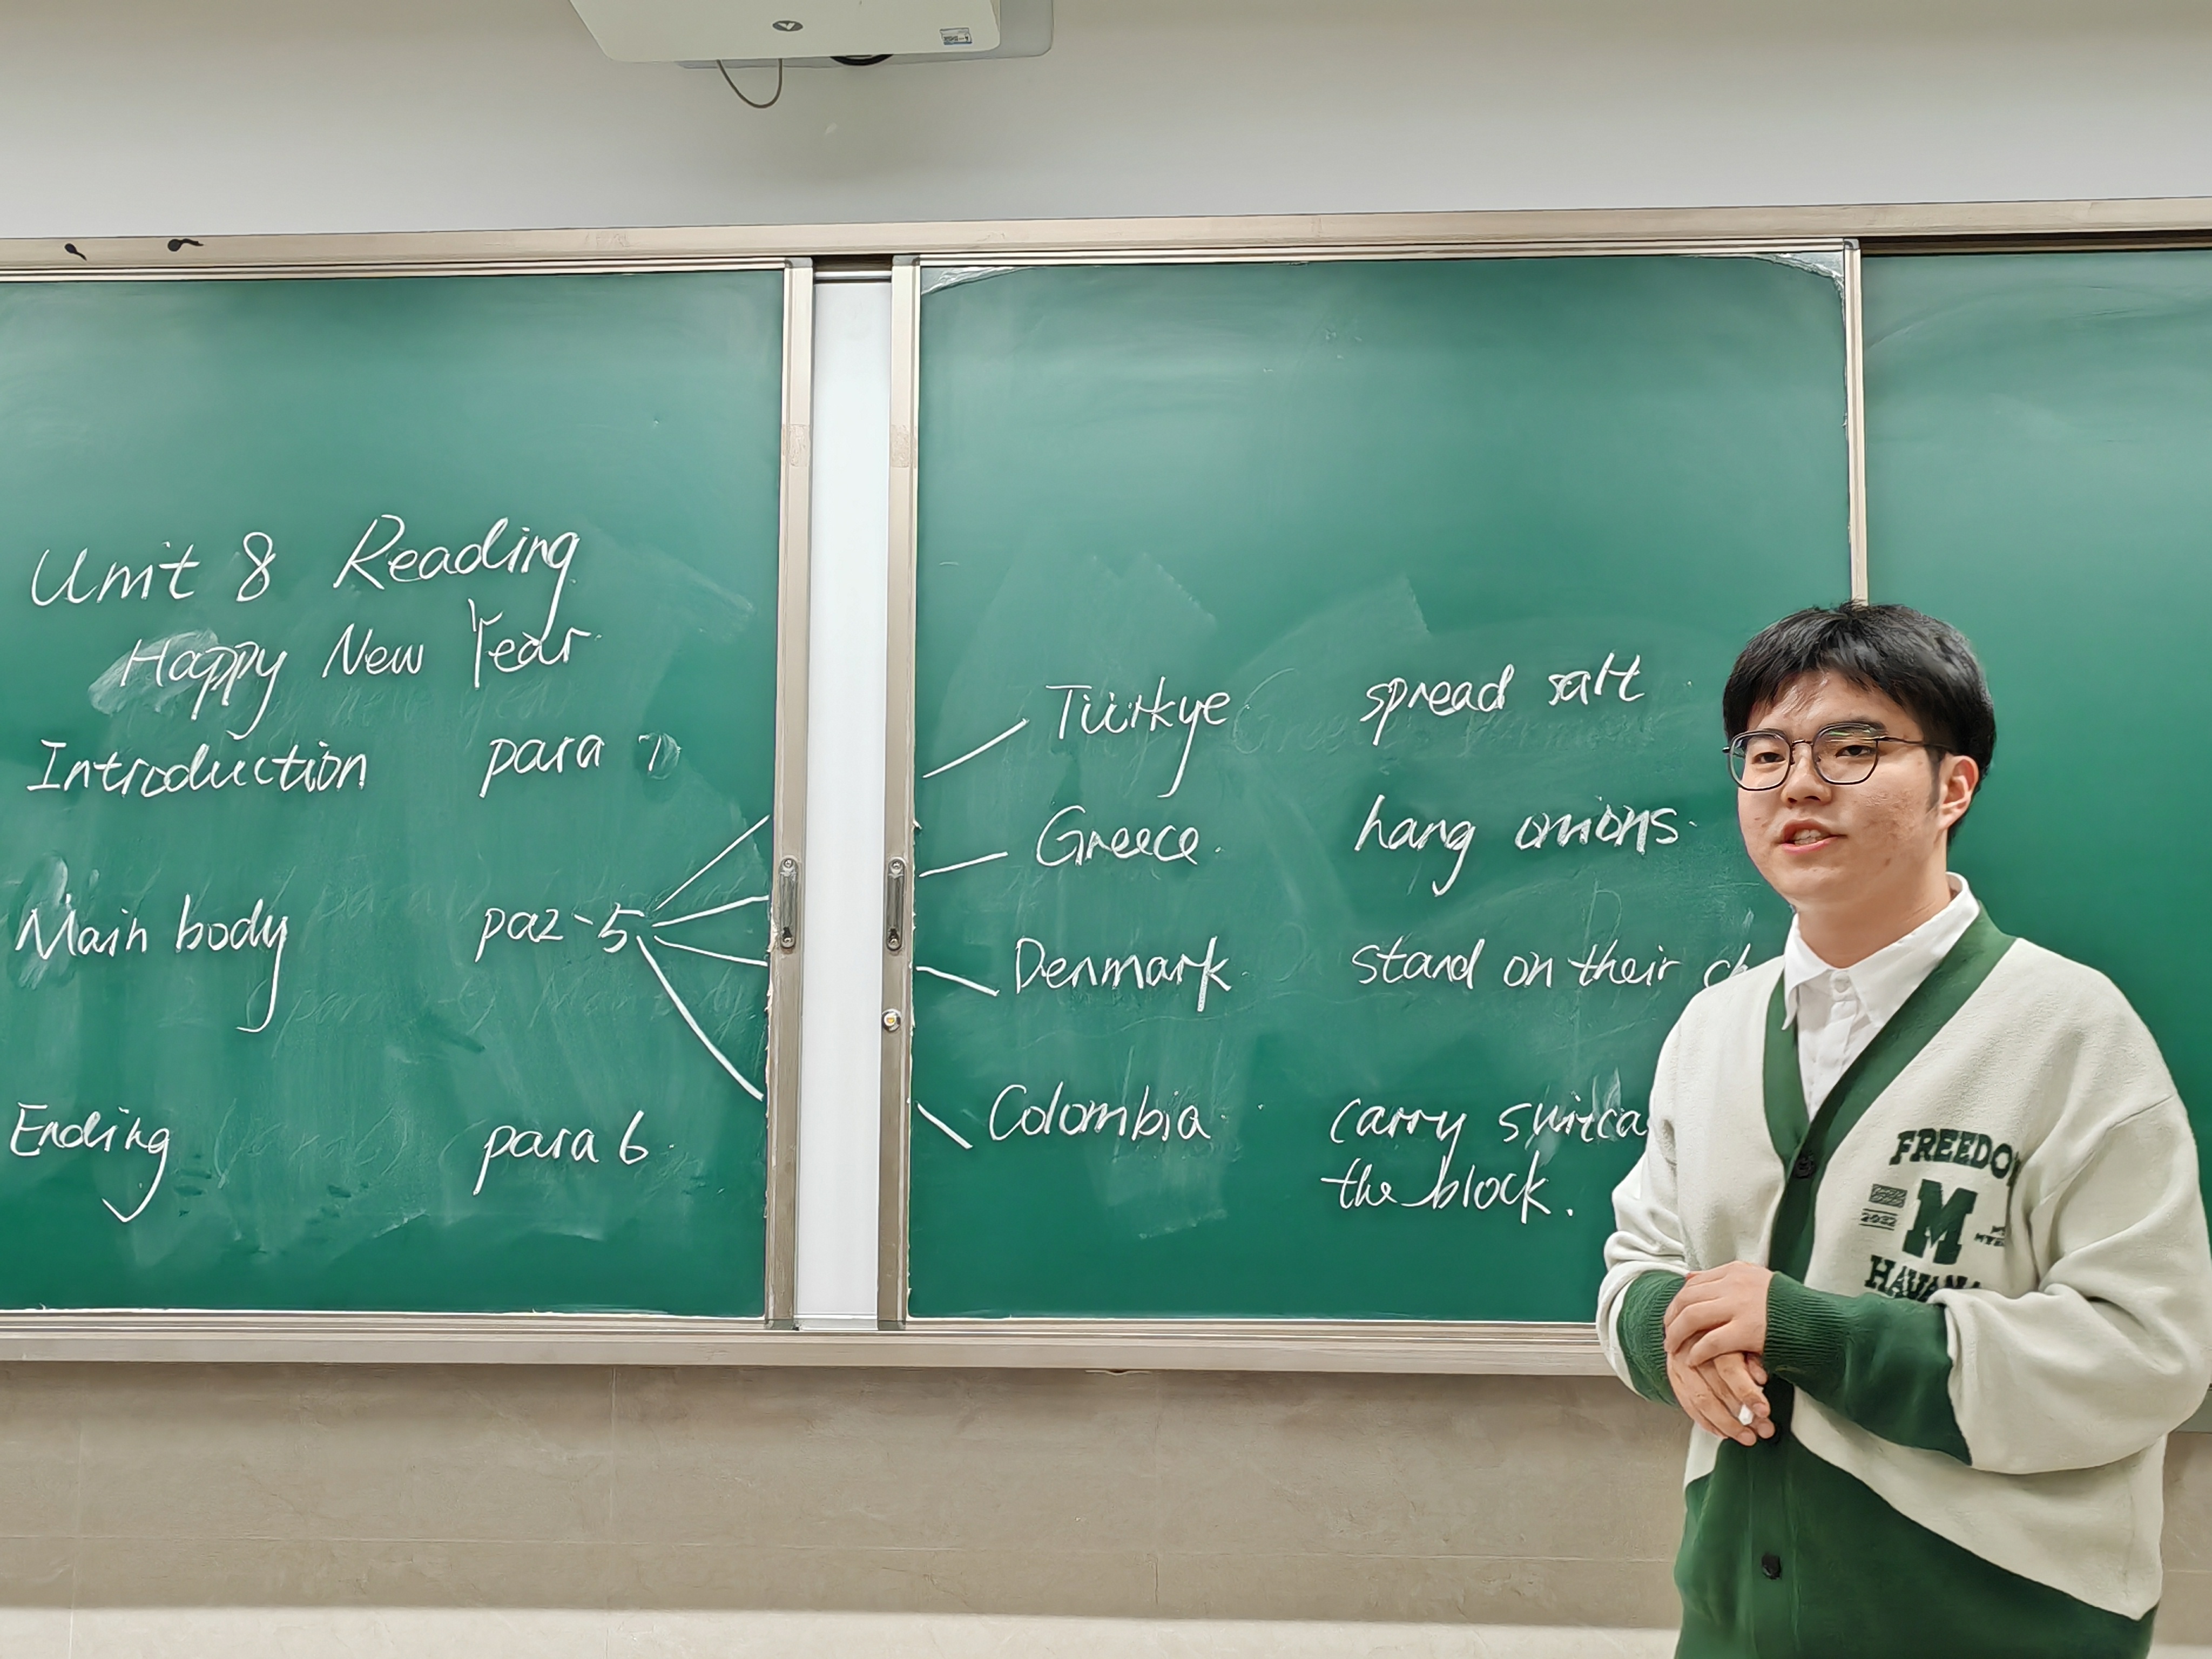 Unit 8 Reading
Happy New Year
Introduction para 1
Main body pa2-5
Ending para 6
Türkye spread salt
Greece hang onions
Denmark stand on their
Colombia carry
the block.
FREEDO
2032
M
HAVANA